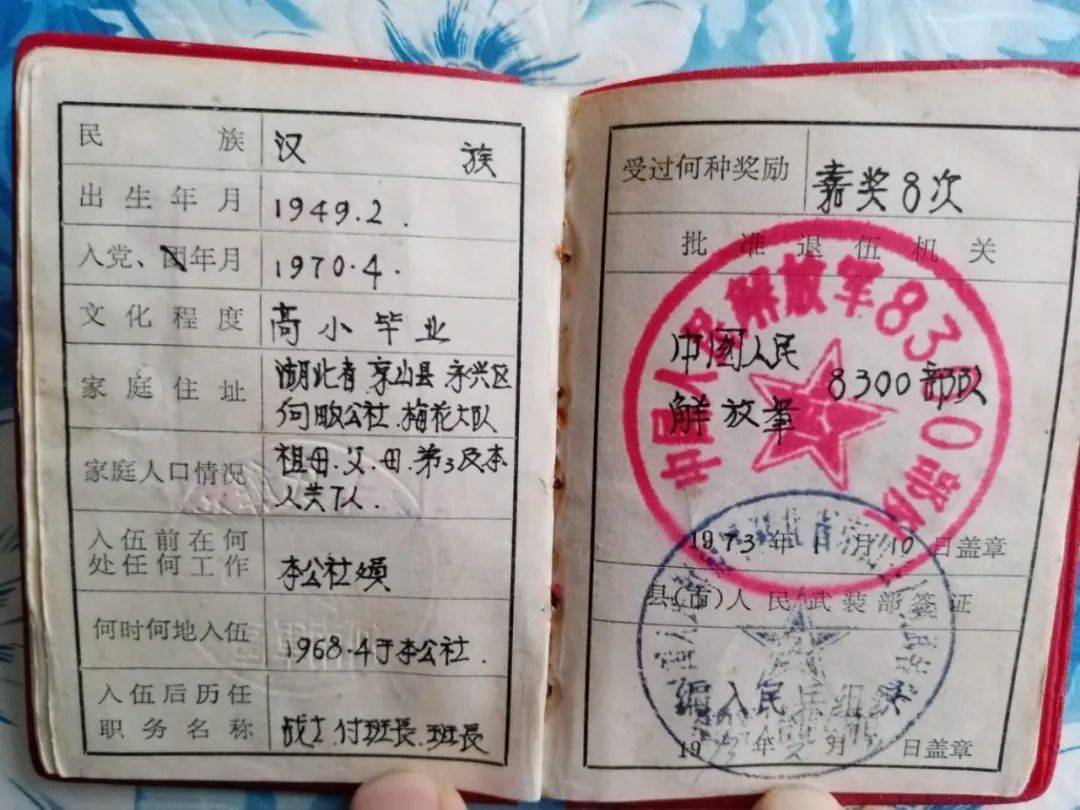 民族 汉族
出生年月 1949.2.
入党、团年月 1970.4.
文化程度 高小毕业
家庭住址 湖北省京山县永兴区
何畈公社.梅花大队
家庭人口情况 祖母.父.母.弟3及本
人共7人.
入伍前在何
处任何工作 本公社员
何时何地入伍 1968.4于本公社.
入伍后历任
职务名称 战士.付班長.班長
受过何种奖励 嘉奖8次
批准退伍机关
中国人民
解放军 8300部队
中国人民解放军8300部队
1973年1月10日盖章
县(市)人民武装部签证
编入民兵组织
1973年2月 日盖章